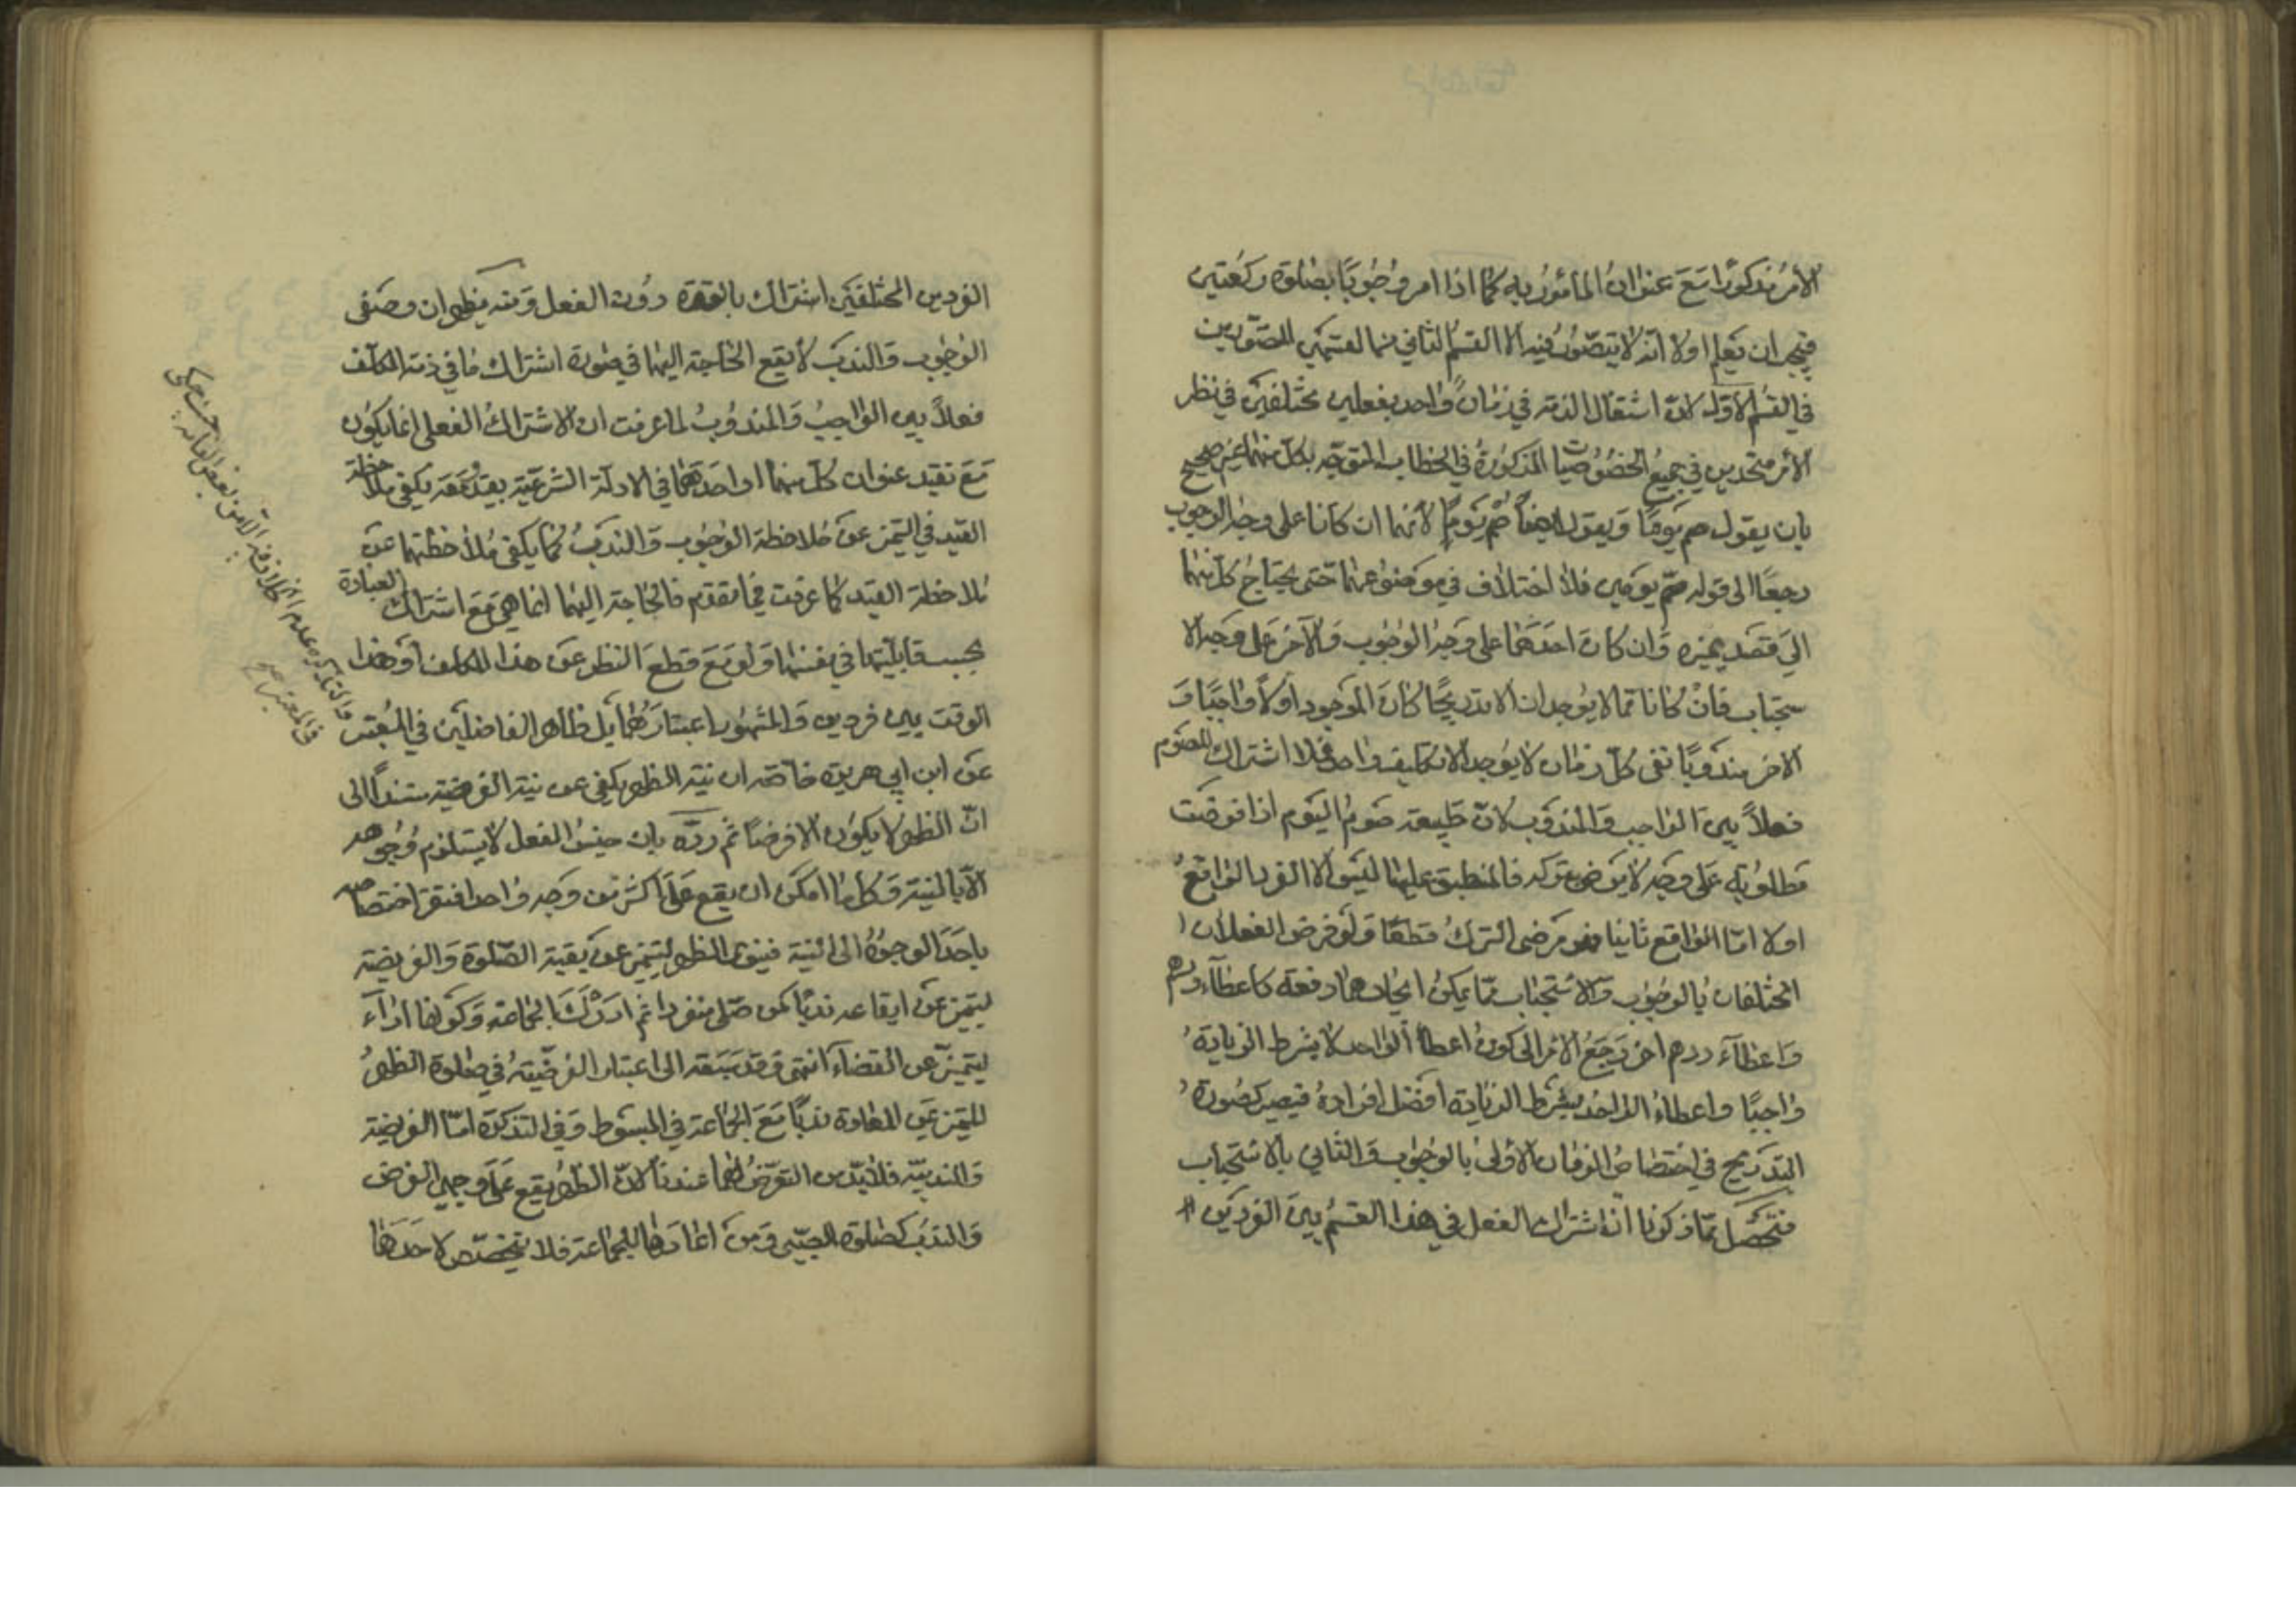 الأمر مذكورا مع عنوان المأمور به كما اذا امر وجوبا بصلوة ركعتين
فيجب ان يعلم اولا انه لا يتصور فيه الا القسم الثاني من القسمين المتصورين
في القسم الاول لان اشتغال الذمة في زمان واحد بفعلين مختلفين في نظر
الأمر متحدين في جميع الخصوصيات المذكورة في الخطاب المتوجه بكل منهما غير صحيح
بان يقول صم يوما ويقول ايضا صم يوما لانهما ان كانا على وجه الوجوب
رجعا الى قوله صم يومين فلا اختلاف في موضوعهما حتى يحتاج كل منهما
الى قصد يميزه وان كان احدهما على وجه الوجوب والآخر على وجه الا
ستحباب فان كانا مما لا يوجدان الا تدريجا كان الموجود اولا واجبا و
الاخر مندوبا ففي كل زمان لا يوجد الا تكليف واحد فلا اشتراك للصوم
فعلا بين الواجب والمندوب لان طبيعة صوم اليوم اذا فرضت
مطلوبة على وجه لا يرضى بتركه فالمنطبق عليها ليس الا الفرد الواقع
اولا اما الواقع ثانيا فهو مرضى الترك قطعا ولو فرض الفعلان ا
المختلفان بالوجوب والاستحباب مما يمكن ايجادهما دفعة كاعطاء درهم
واعطاء درهم اخر رجع الامر الى كون اعطاء الواحد لا بشرط الزيادة
واجبا واعطاء الواحد بشرط الزيادة افضل افراده فيصير كصورة
التدريج في اختصاص الزمان الاولى بالوجوب والثاني بالاستحباب
فتحصل مما ذكرنا ان اشتراك الفعل في هذا القسم بين الفردين
الفردين المختلفين اشتراك بالقوة دون الفعل ومنه يظهر ان وصفى
الوجوب والندب لا يقع الحاجة اليهما في صورة اشتراك ما في ذمة المكلف
فعلا بين الواجب والمندوب لما عرفت ان الاشتراك الفعلي انما يكون
مع تقيد عنوان كل منهما او احدهما في الادلة الشرعية بقيد معه يكفي ملاحظة
القيد في التميز عن ملاحظة الوجوب والندب كما يكفي ملاحظتهما عن
ملاحظة القيد كما عرفت فيما تقدم فالحاجة اليهما انما هي مع اشتراك العبادة
بحسب قابليتها في نفسها ولو مع قطع النظر عن هذا المكلف وهذا
الوقت بين فردين والمشهور اعتبارهما بل ظاهر الفاضلين في المعتبر
عن ابن ابي هريرة خاصة ان نية الظهر يكفي عن نية الفريضة مستندا الى
ان الظهر لا يكون الا فرضا ثم رده بان جنس الفعل لا يستلزم وجوهه
الا بالنية وكل ما امكن ان يقع على اكثر من وجه واحد افتقر اختصاصه
باحد الوجوه الى النية فينوي الظهر ليتميز عن بقية الصلوة والفريضة
ليتميز عن ايقاعه ندبا كمن صلى منفردا ثم ادرك الجماعة وكونها اداء
ليتميز عن القضاء انتهى وقد سبقه الى اعتبار الفرضية في صلوة الظهر
للتميز عن المعادة ندبا مع الجماعة في المبسوط وفي التذكرة اما الفريضة
والندبية فلا بد من التعرض لهما عندنا لان الظهر يقع على وجهي الفرض
والندب كصلوة الصبي ومن اعادها للجماعة فلا يتخصص لاحدهما
والتذكرة عدم الخلاف فيه الا من بعض العامة حيث حكى
في المعتبر صح